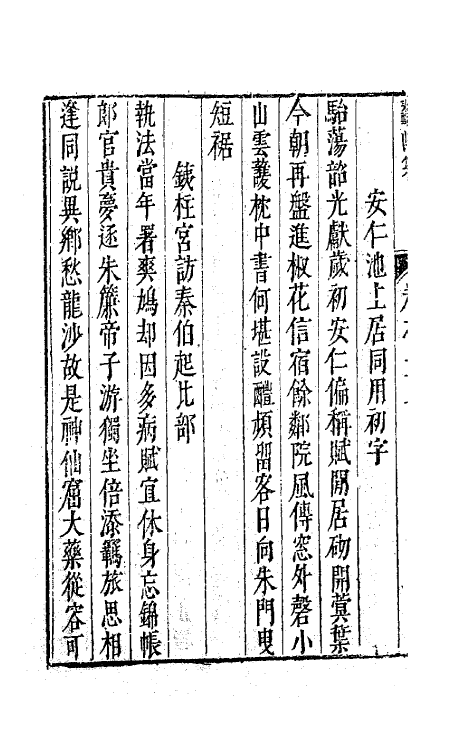 安仁池上居同用初字
駘蕩韶光獻歲初安仁偏稱賦閒居砌開蓂葉
今朝再盤進椒花信宿餘鄰院風傳窓外磬小
山雲護枕中書何堪設醴頻留客日向朱門曳
短裾
鐵柱宮訪秦伯起比部
執法當年署爽鳩却因多病賦宜休身忘錦帳
郎官貴夢逐朱簾帝子游獨坐倍添羈旅思相
逢同說異鄉愁龍沙故是神仙窟大藥從容可